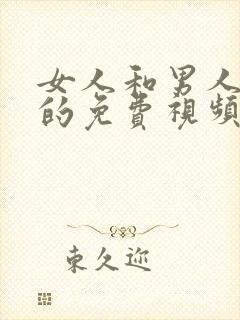 女人和男人
的免費視頻
東久迩